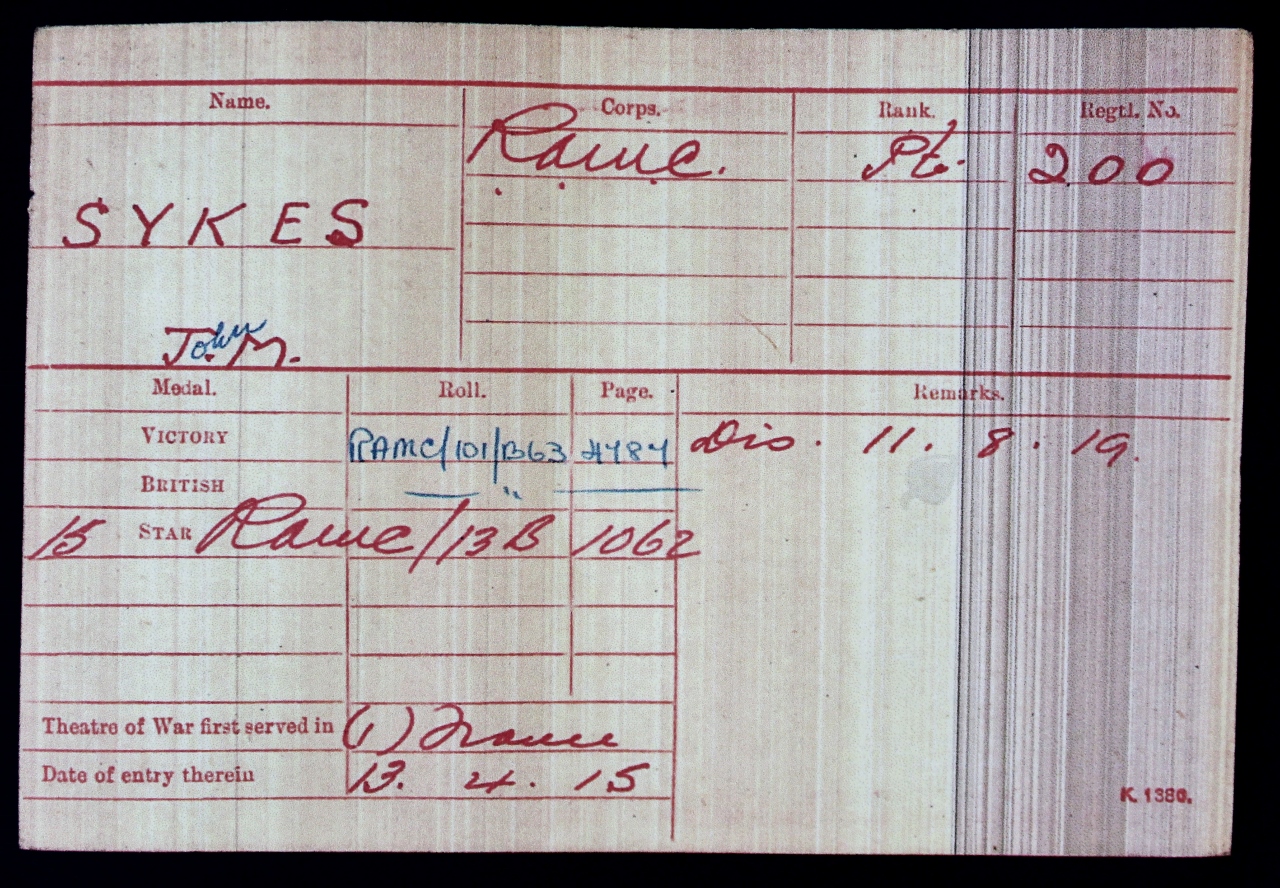 Name. Corps. Rank. Regtl. No.
RAMC. Pte. 200
SYKES
J. John M.
Medal. Roll. Page. Remarks.
VICTORY RAMC/101/B63 4784 Dis. 11. 8. 19.
BRITISH — „ —
15 STAR RAMC/13B 1062
Theatre of War first served in (1) France
Date of entry therein 13. 4. 15
K. 1380.